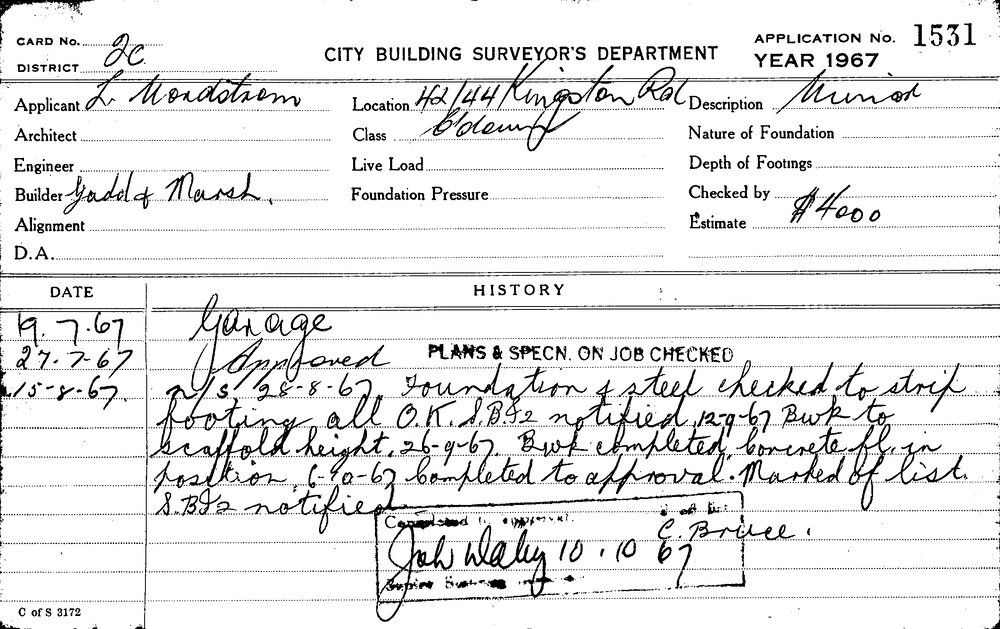 CARD No. 2c
DISTRICT
CITY BUILDING SURVEYOR'S DEPARTMENT
APPLICATION No. 1531
YEAR 1967
Applicant L. Nordstrom
Location 42/44 Kingston Rd
Description Minor
Architect
Class C'down
Nature of Foundation
Engineer
Live Load
Depth of Footings
Builder Gadd & Marsh.
Foundation Pressure
Checked by
Alignment
Estimate $4000
D.A.
DATE HISTORY
19.7.67 Garage
27-7-67 Approved PLANS & SPECN. ON JOB CHECKED
15-8-67. n/s, 28-8-67, Foundation & steel checked to strip
footing all O.K. S.B.I2 notified, 12-9-67 Bwk to
scaffold height, 26-9-67. Bwk completed, concrete fl. in
position, 6-10-67 Completed to approval. Marked of list.
S.B.I2 notified
Completed to approval
C. Bruce.
Joh Daley 10.10 67
C of S 3172